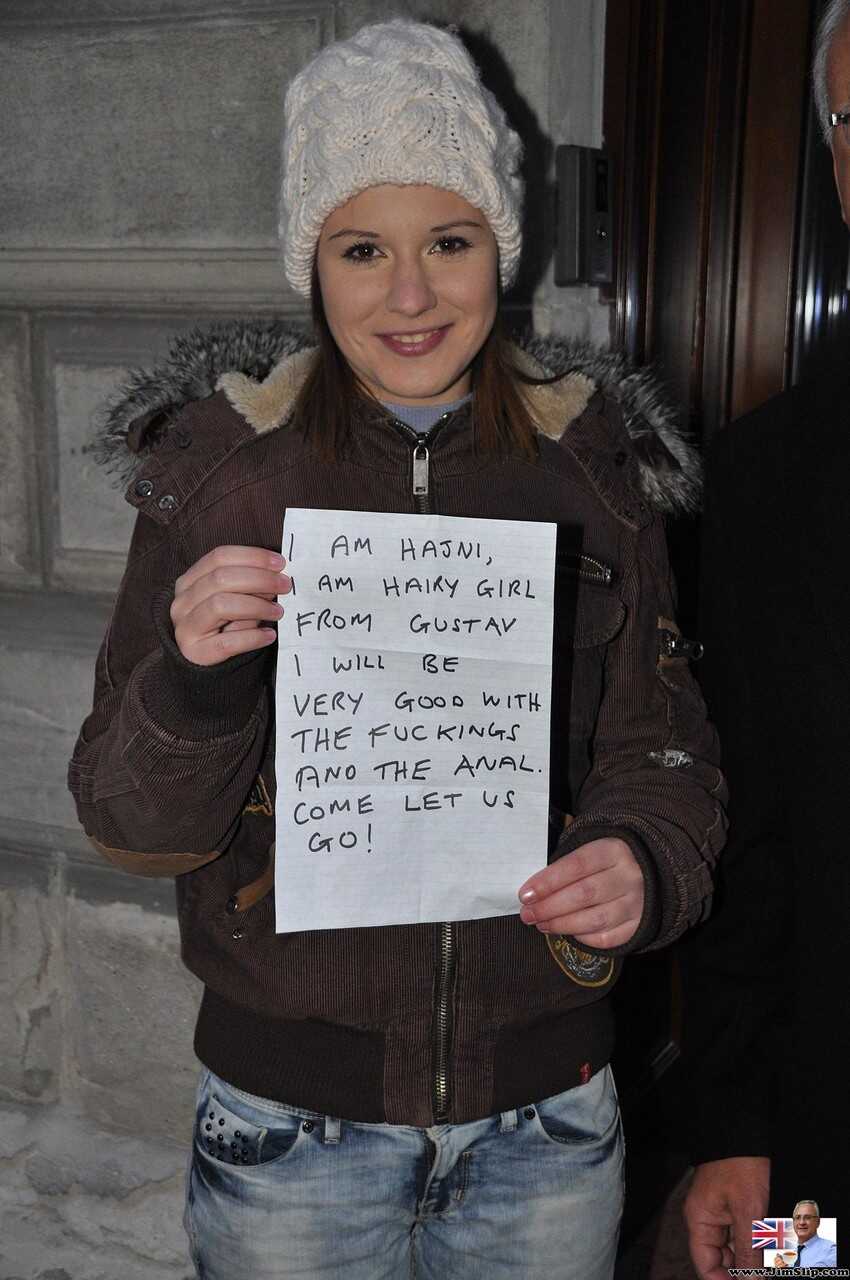 I AM HAJNI,
I AM HAIRY GIRL
FROM GUSTAV
I WILL BE
VERY GOOD WITH
THE FUCKINGS
AND THE ANAL.
COME LET US
GO!
www.JimSlip.com